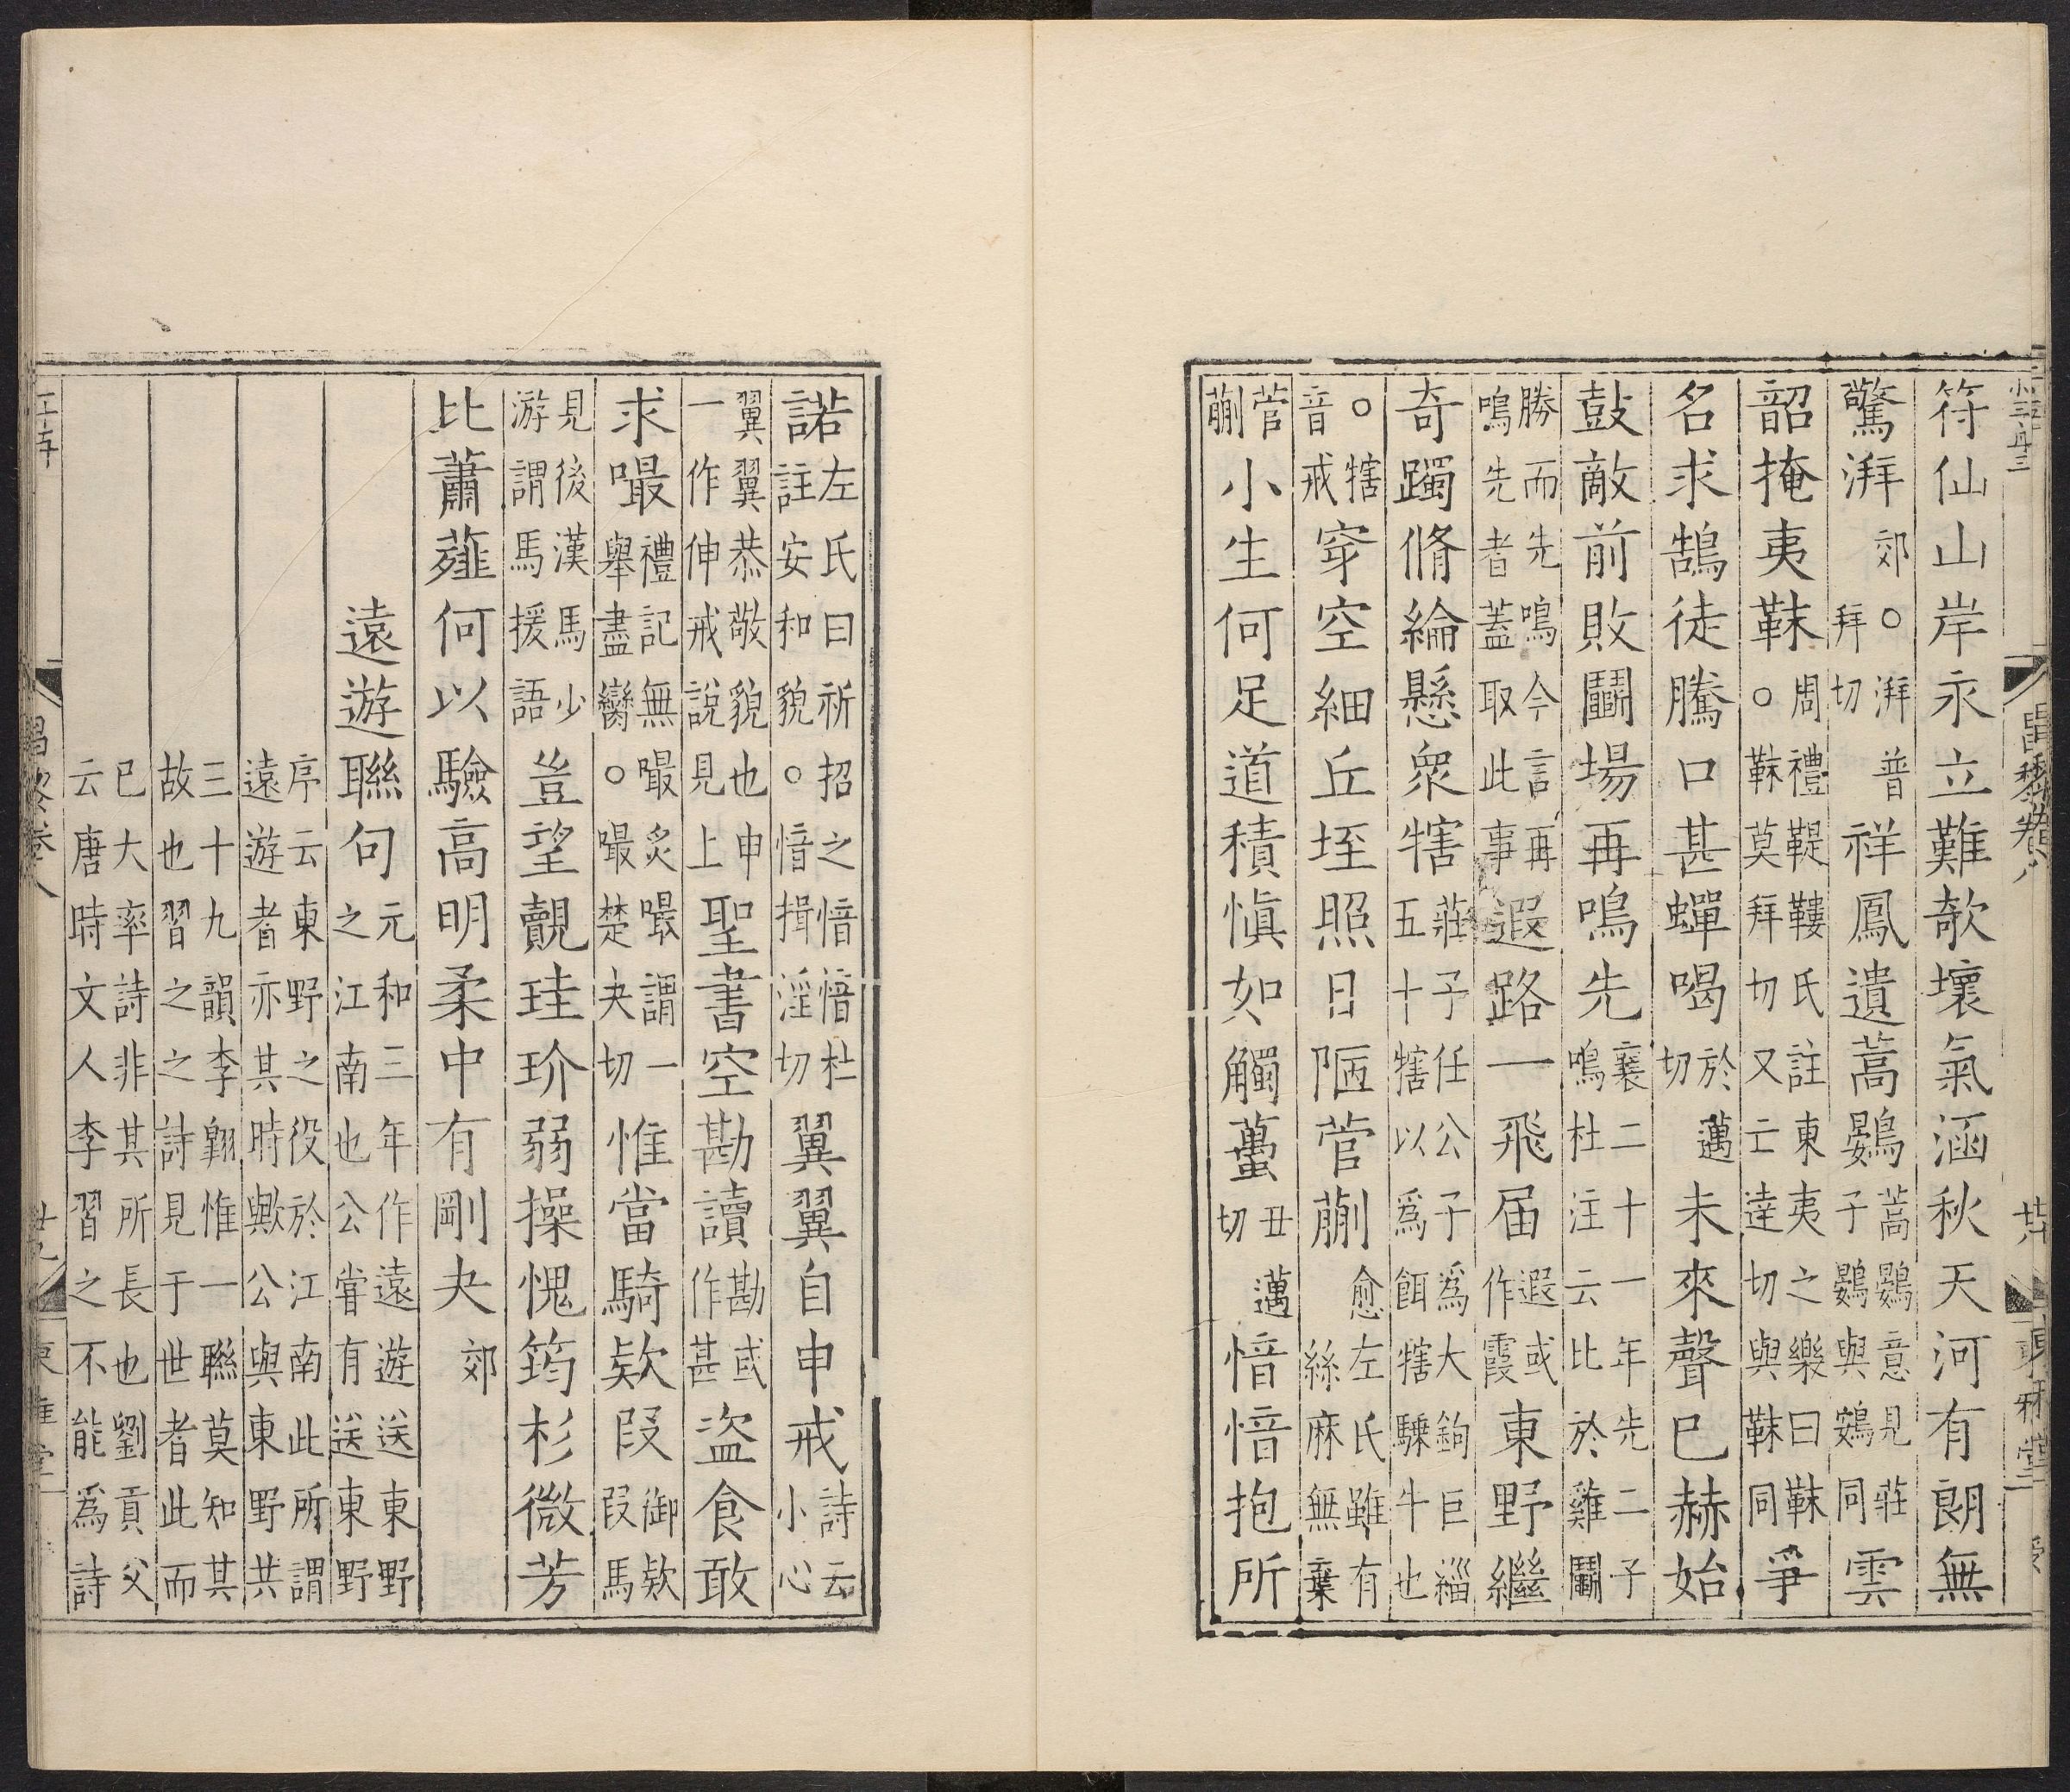 符仙山岸永立難欹壞氣涵秋天河有朗無
驚湃郊○湃普拜切祥鳳遺蒿鷃蒿鷃意見莊子鷃與鴳同雲
韶掩夷靺周禮鞮鞻氏註東夷之樂曰靺○靺莫拜切又亡達切與靺同爭
名求鵠徒騰口甚蟬喝於邁切未來聲已赫始
鼓敵前敗鬭場再鳴先襄二十一年先二子鳴杜注云比於雞鬭
勝而先鳴今言再鳴先者蓋取此事遐路一飛届遐或作霞東野繼
奇躅脩綸懸衆犗莊子任公子爲大鉤巨緇五十犗以爲餌犗騬牛也
○犗音戒穽空細丘垤照日陋菅蒯愈左氏雖有絲麻無棄
菅蒯小生何足道積慎如觸蠆丑邁切愔愔抱所
昌黎卷八
東雅堂
諾左氏曰祈招之愔愔杜註安和貌○愔揖淫切翼翼自申戒詩云小心
翼翼恭敬貌也申一作伸戒說見上聖書空勘讀勘或作甚盜食敢
求嘬禮記無嘬炙嘬謂一舉盡臠○嘬楚夬切惟當騎欵叚御欵叚馬
見後漢馬少游謂馬援語豈望覿珪玠弱操愧筠杉微芳
比蕭薤何以驗高明柔中有剛夬郊
遠遊聯句元和三年作遠遊送東野之江南也公嘗有送東野
序云東野之役於江南此所謂遠遊者亦其時歟公與東野共
三十九韻李翱惟一聯莫知其故也習之之詩見于世者此而
已大率詩非其所長也劉貢父云唐時文人李習之不能爲詩
昌黎卷八
廿九
東雅堂